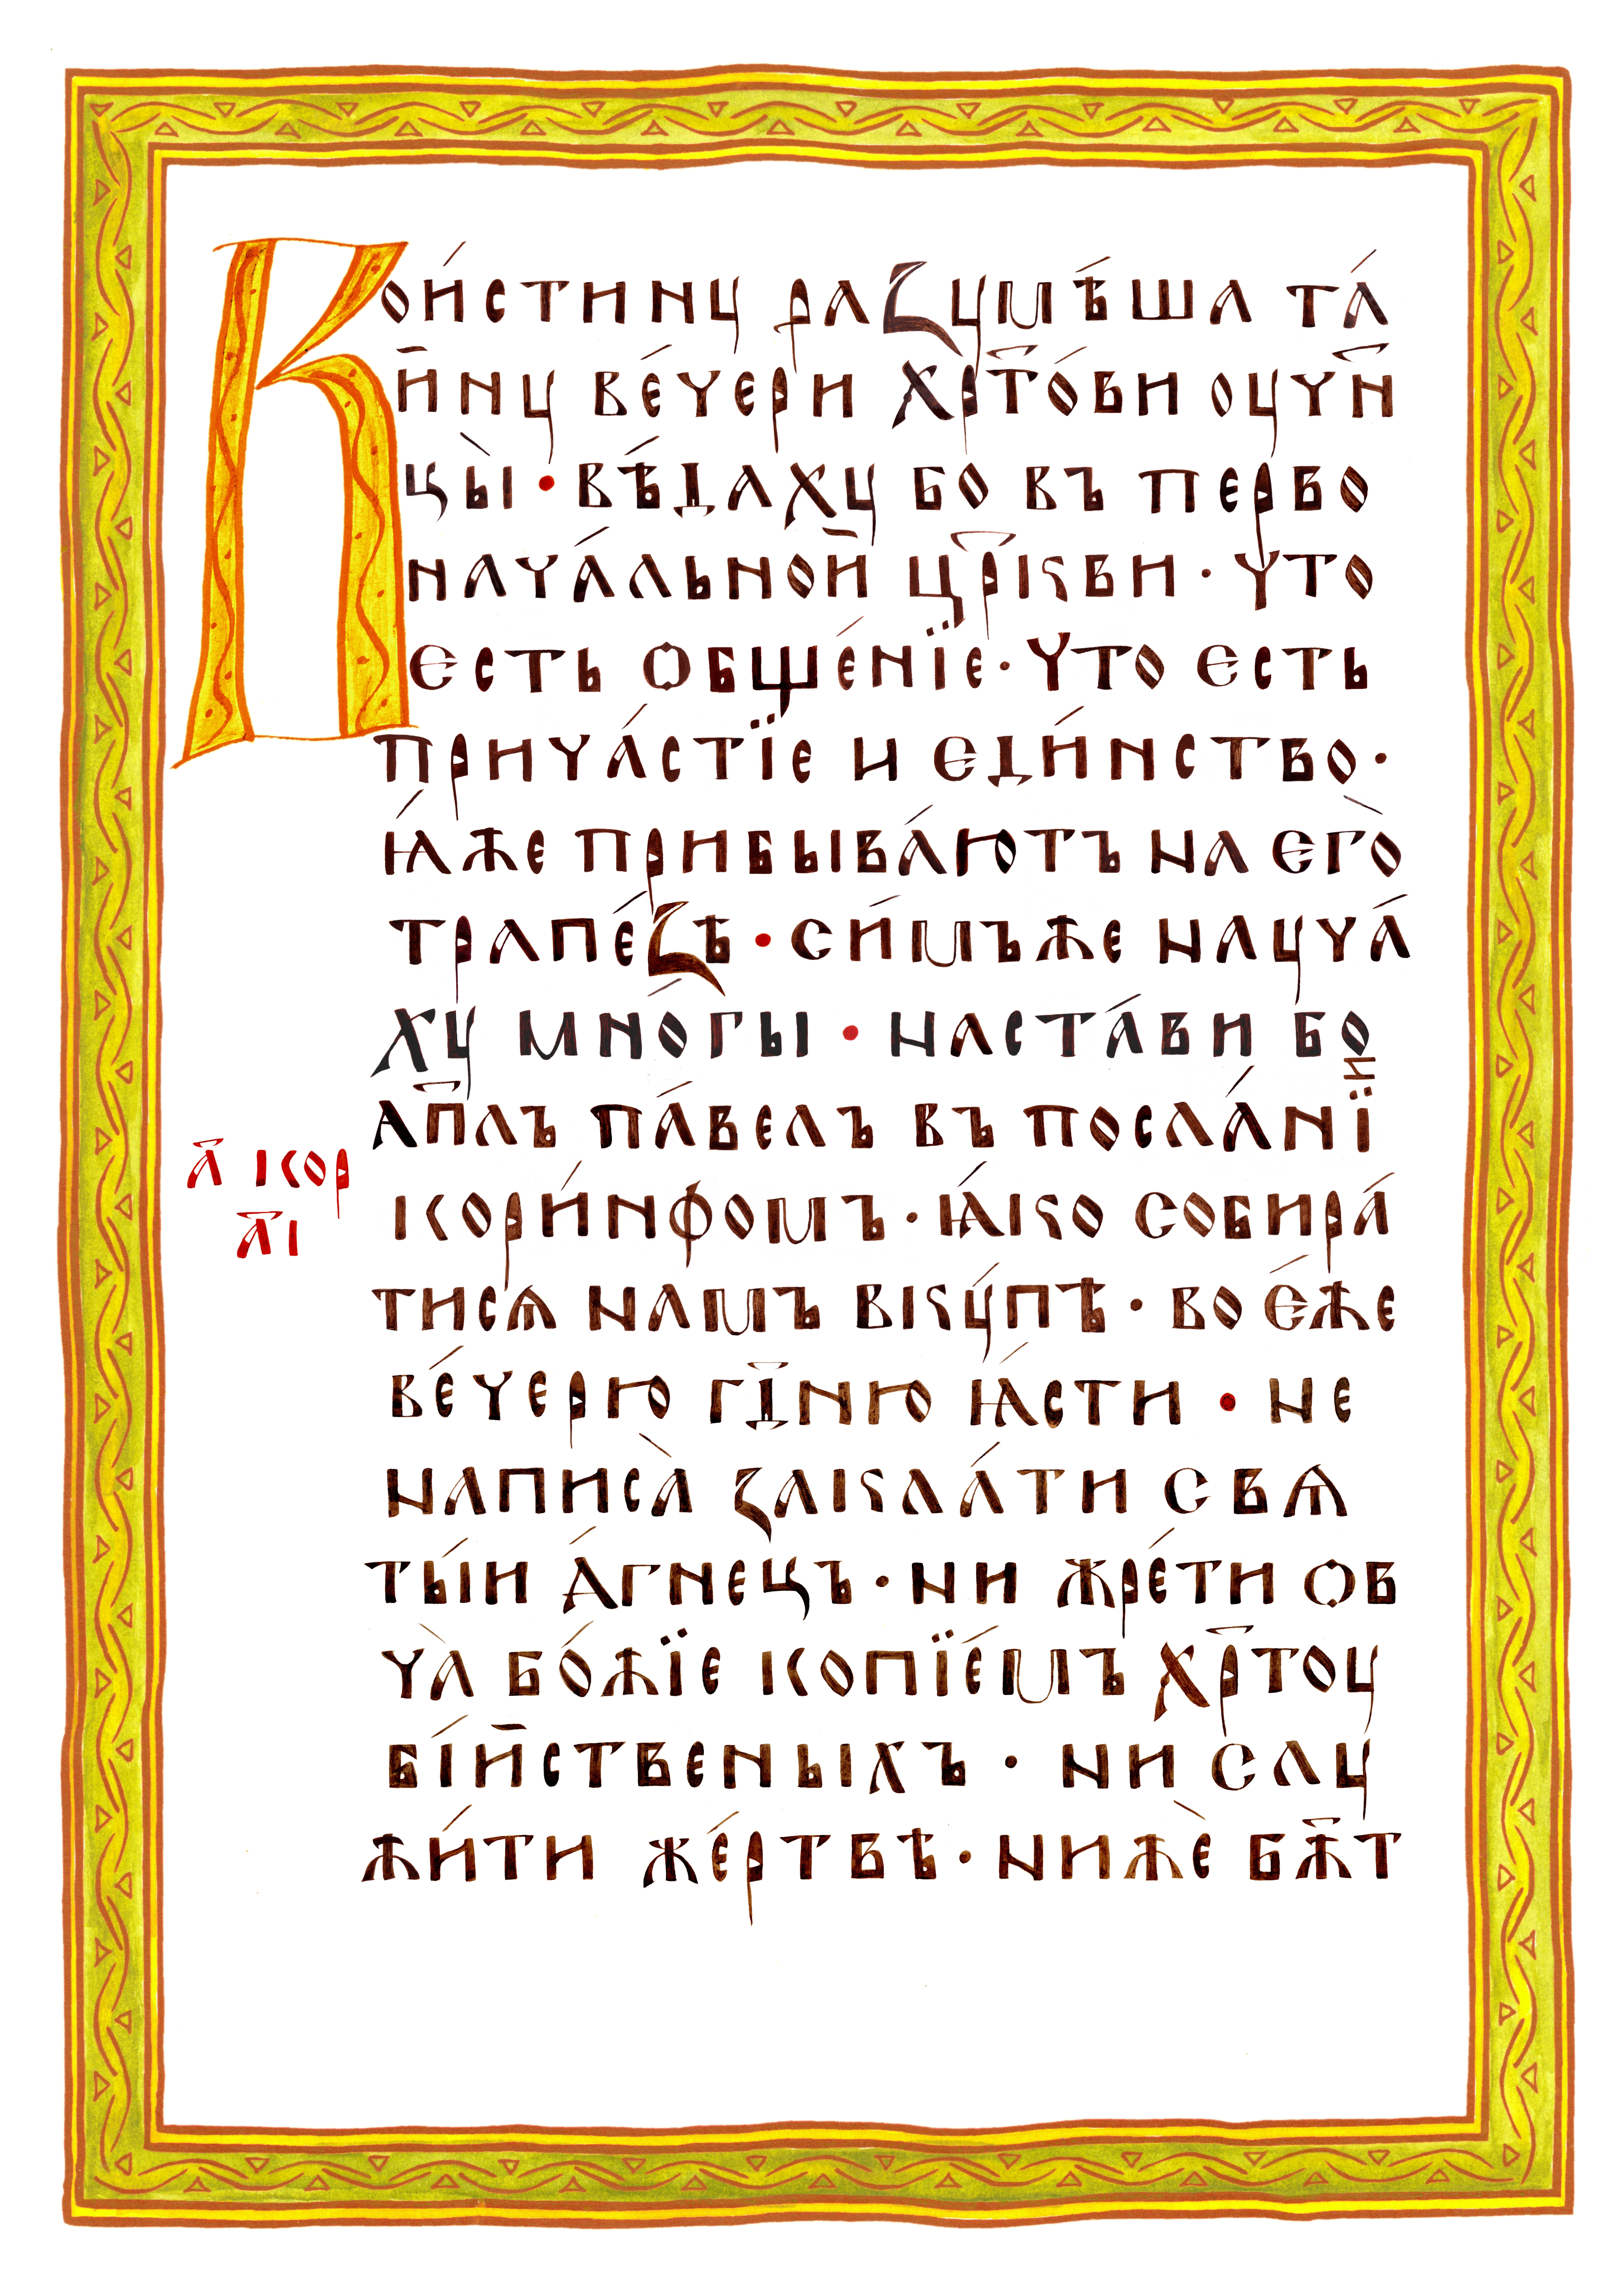 Вои́стинꙋ раꙁꙋмѣ́ша та́
и҃нꙋ ве́чери хрт҃о́ви оуч҃н
цы̀ · вѣ́дахꙋ бо въ перво
нача́льной цр҃кви · что
єсть ѻбще́нїе · что єсть
прича́стїе и єди́нство ·
ꙗ́же прибыва́ютъ на єго̀
трапе́ꙁѣ · си́мъже наꙋча́
хꙋ мно́гы · наста́ви бо
ап҃лъ па́велъ въ посла́нїи
кори́нфомъ · ꙗ́ко собира́
тисѧ намъ вкꙋ́пѣ · во є́же
ве́черю гд҃ню ꙗ́сти · не
написа̀ ꙁакла́ти свѧ
ты́и а́гнецъ · ни жре́ти ѻв
ча̀ бо́жїе копїе́мъ хр҃тоꙋ
бі́йственыхъ · ни слꙋ
жи́ти же́ртвѣ · нижѐ бж҃т
а҃ кор
а҃і